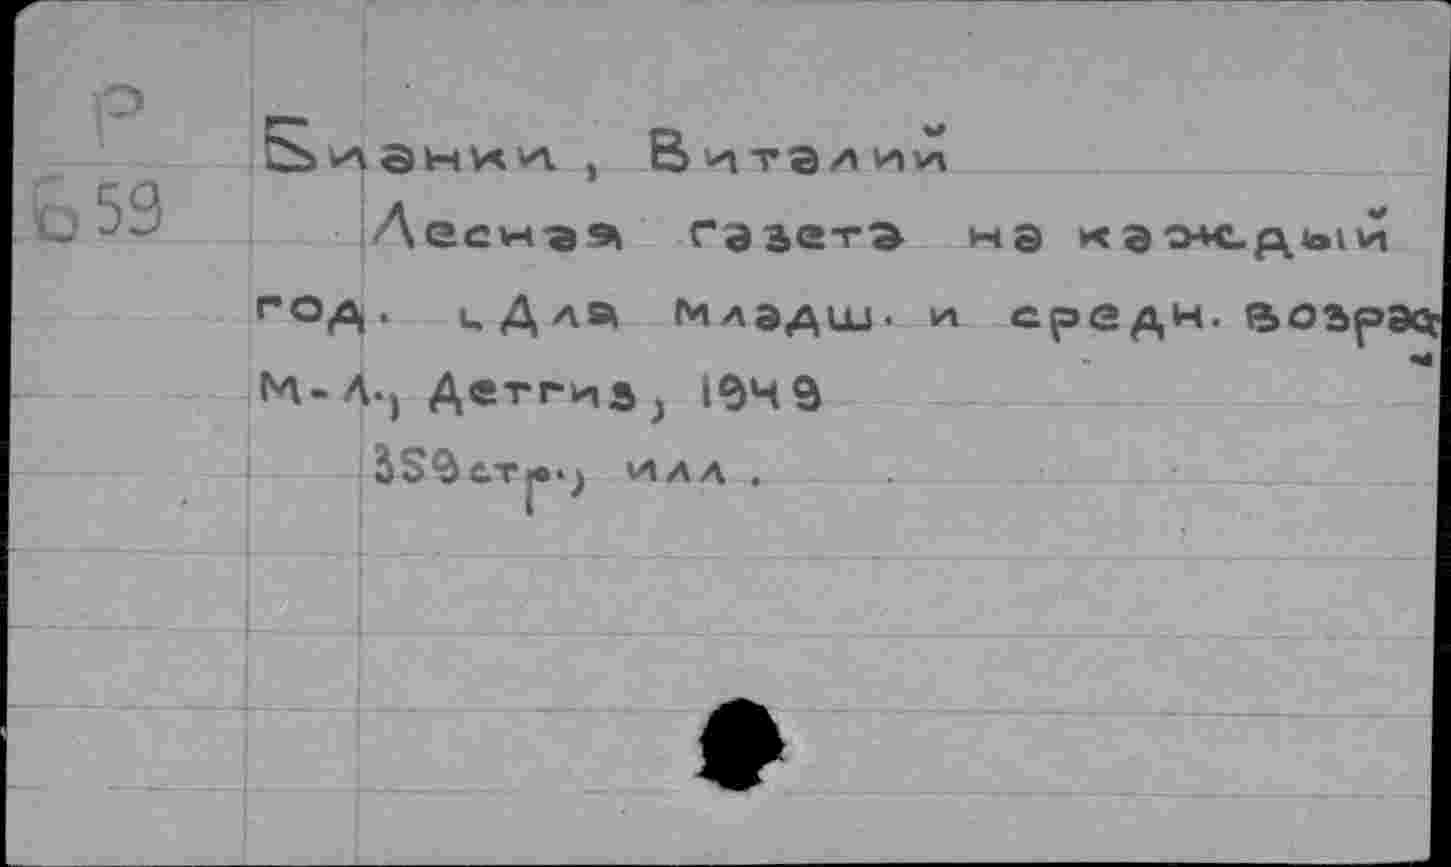 Р
Б59
Бианки, Виталий
Лесная газета на каждый
год. [Для младш. и средн. возрас
М-Л., Детгиз, 1949
359стр., илл.